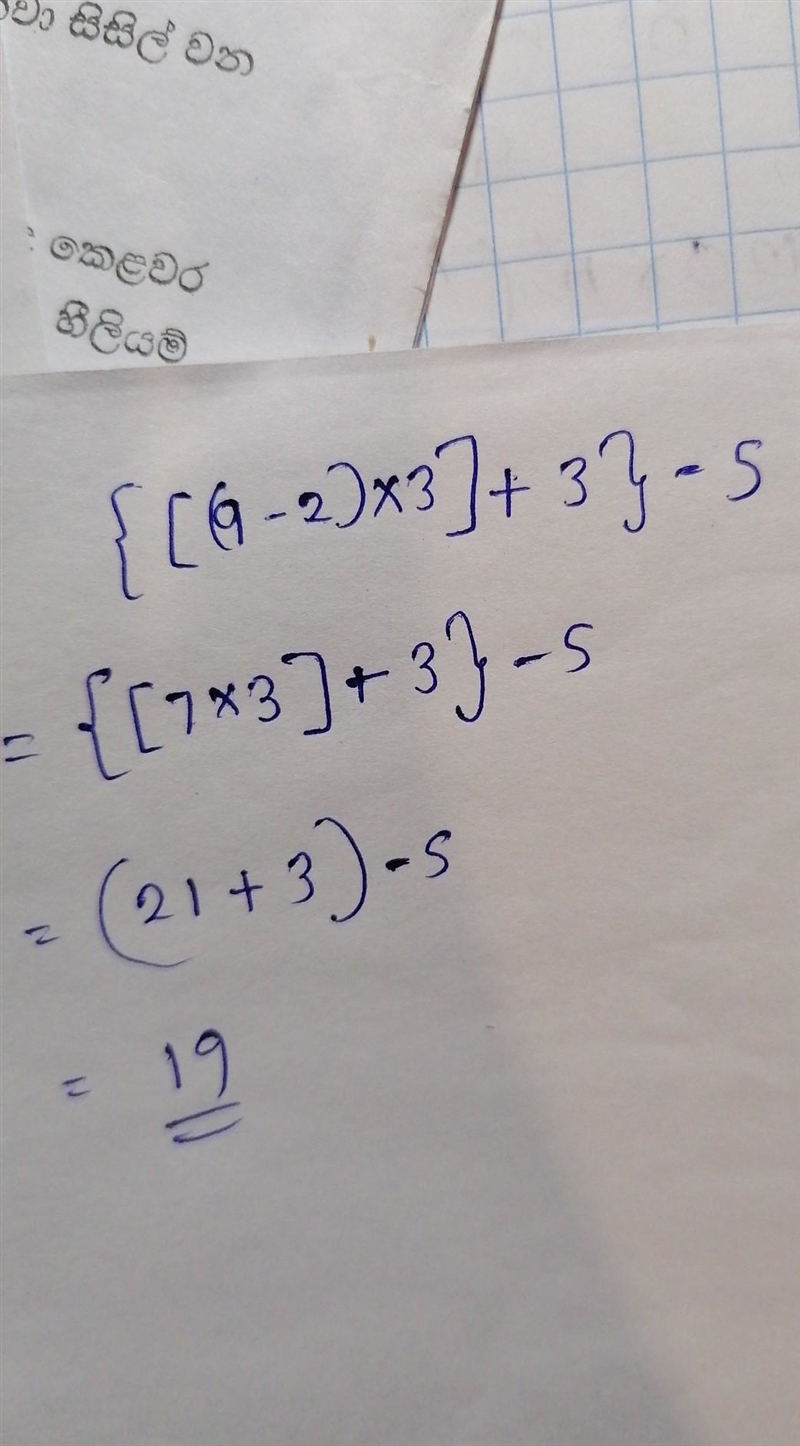 සිසිල් වන
කෙළවර
හීලියම්
{[(9-2)×3]+3}-5
={[7×3]+3}-5
=(21+3)-5
=19